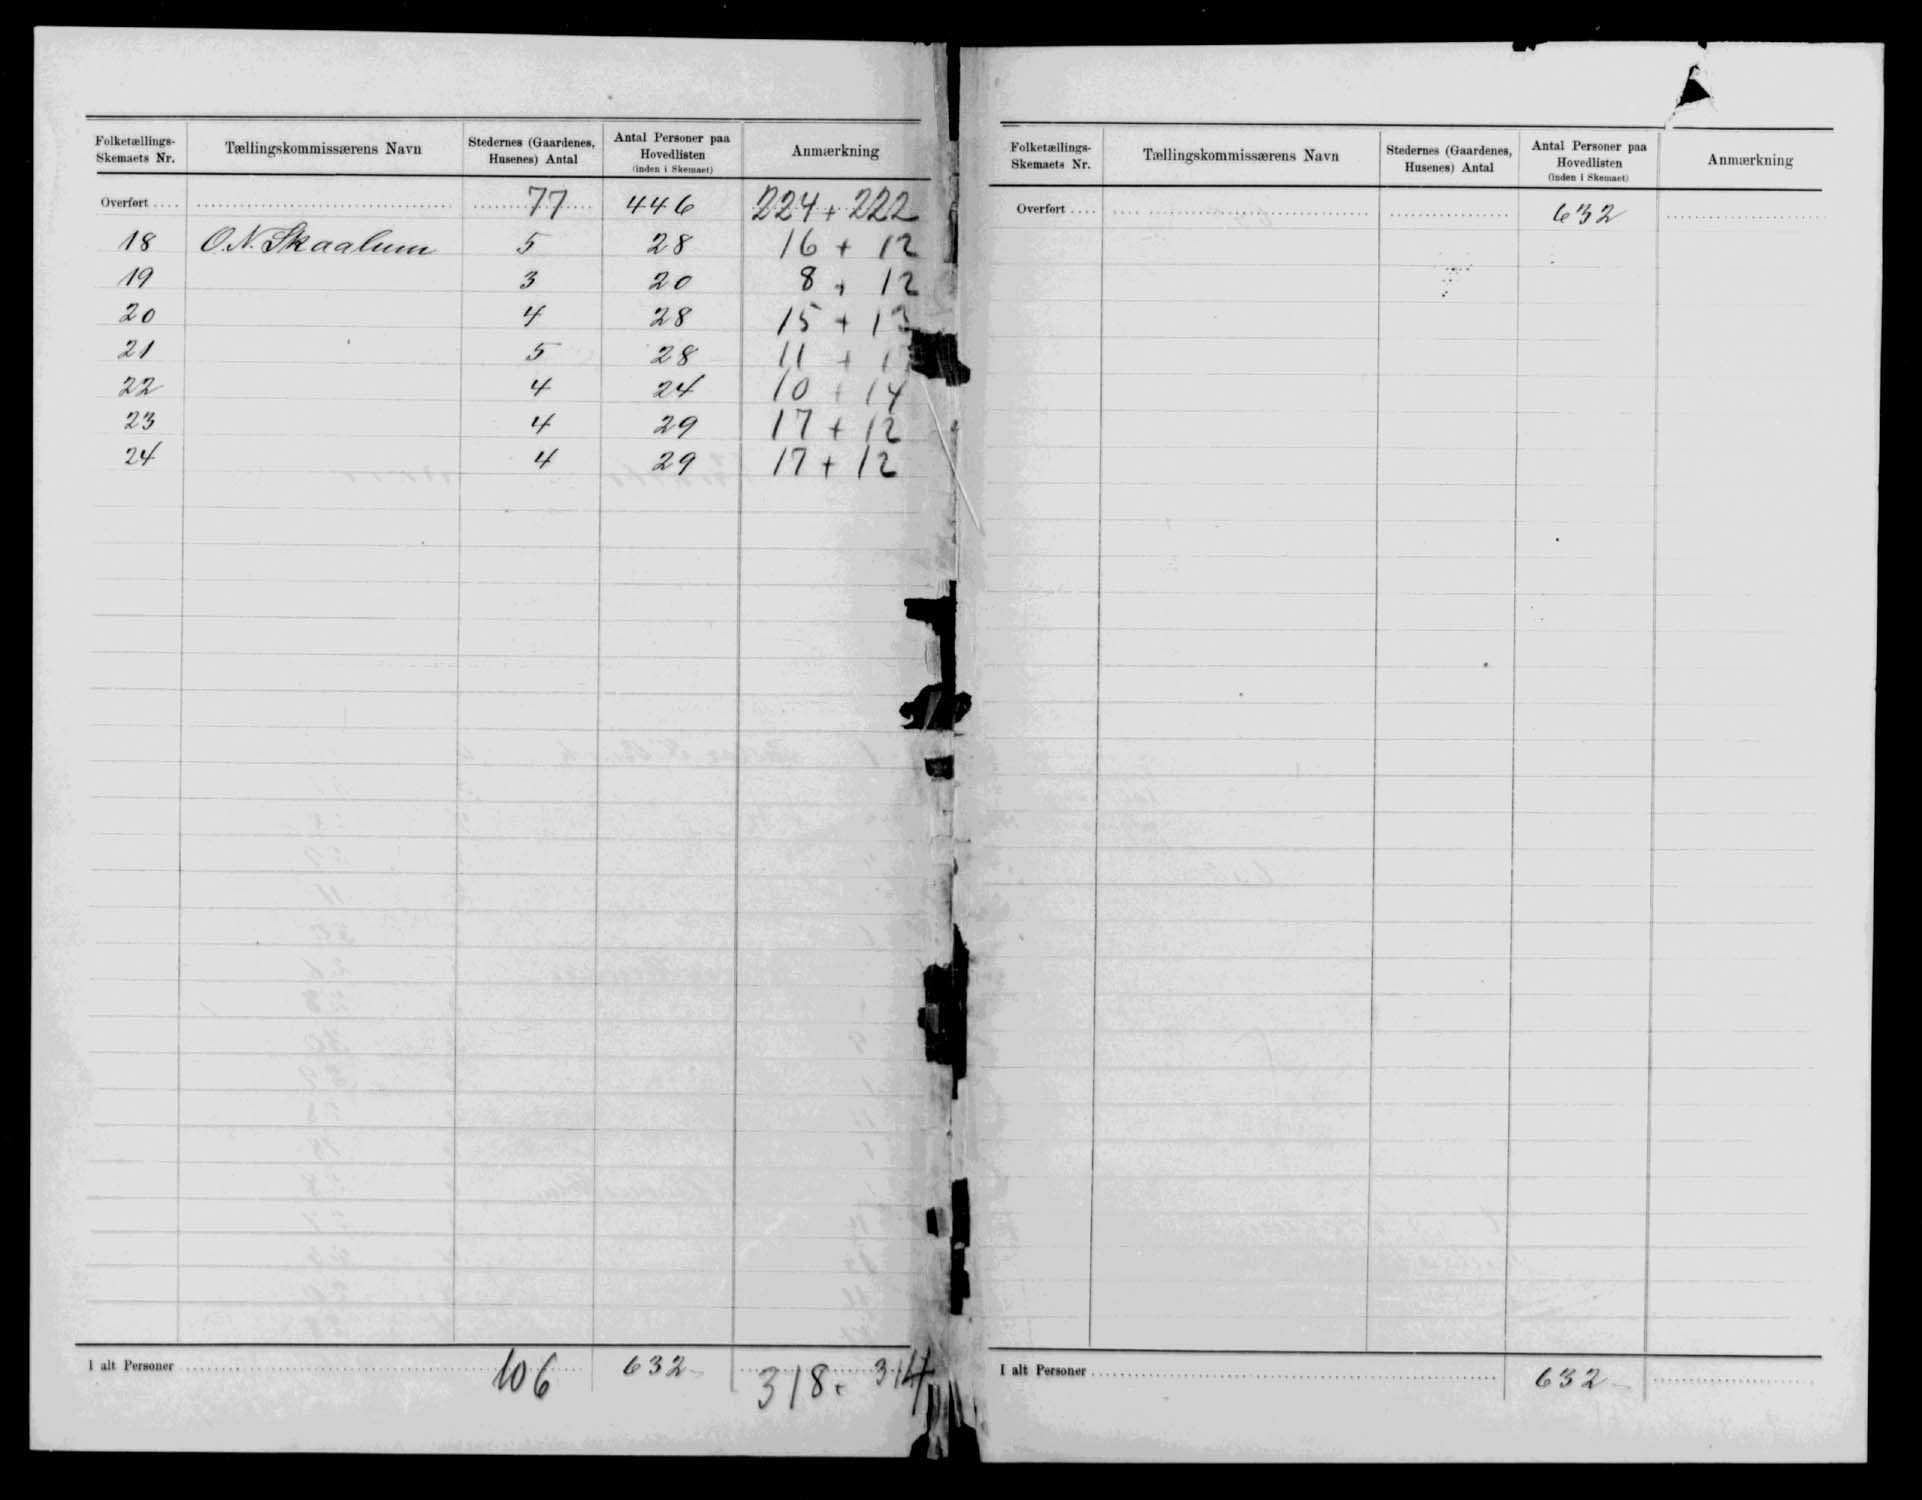 Folketællings-Skemaets Nr. Tællingskommissærens Navn Stedernes (Gaardenes, Husenes) Antal Antal Personer paa Hovedlisten (inden i Skemaet) Anmærkning
Overført 77 446 224 + 222
18 O.N. Skaalum 5 28 16 + 12
19 3 20 8 + 12
20 4 28 15 + 13
21 5 28 11 +
22 4 24 10 + 14
23 4 29 17 + 12
24 4 29 17 + 12
I alt Personer 106 632 318 + 314
Folketællings-Skemaets Nr. Tællingskommissærens Navn Stedernes (Gaardenes, Husenes) Antal Antal Personer paa Hovedlisten (inden i Skemaet) Anmærkning
Overført 632
I alt Personer 632